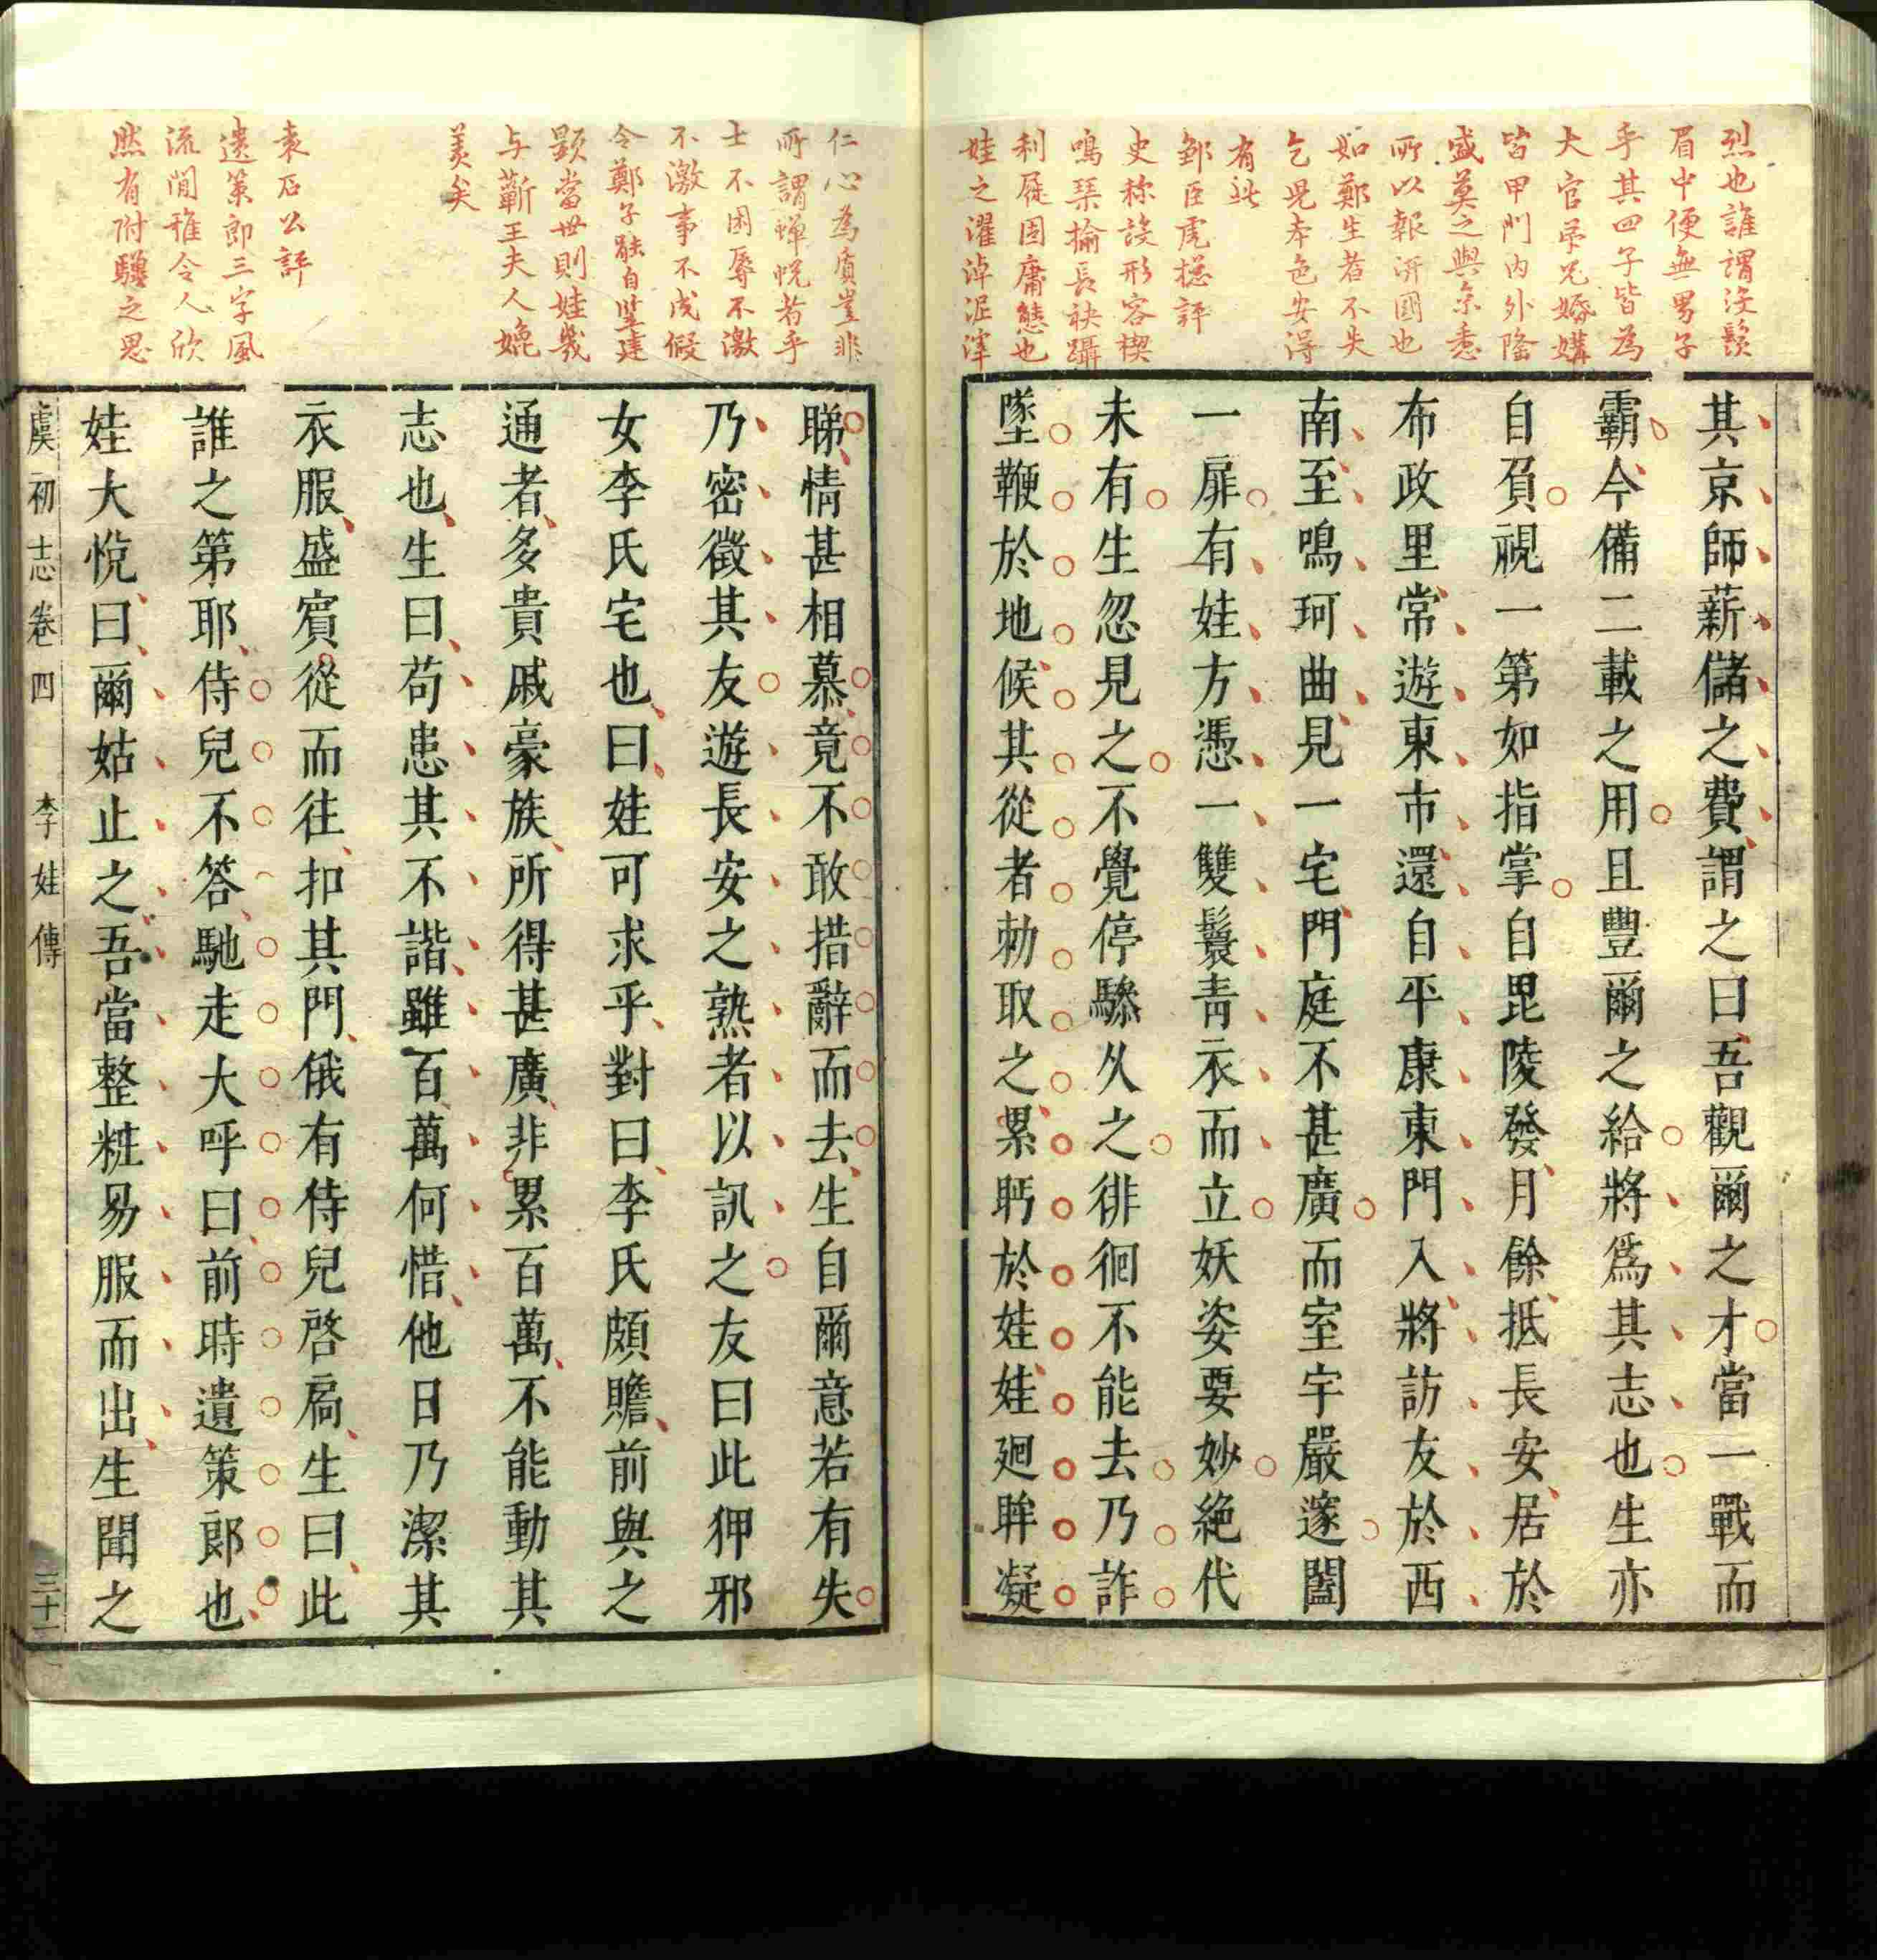 烈也誰謂没鬚
眉中便無男子
乎其四子皆為
大官弟兄婚媾
皆甲門内外隆
盛莫之與京悉
所以報汧國也
如鄭生者不失
乞兒本色安得
有此
鄒臣虎揔評
史称設形容楔
鳴琹揄長袂躡
利屣固庸態也
娃之濯淖泥滓
其京師薪儲之費謂之曰吾觀爾之才當一戰而
霸今備二載之用且豐爾之給將爲其志也生亦
自負視一第如指掌自毘陵發月餘抵長安居於
布政里常遊東市還自平康東門入將訪友於西
南至鳴珂曲見一宅門庭不甚廣而室宇嚴邃闔
一扉有娃方憑一雙鬟青衣而立妖姿要妙絶代
未有生忽見之不覺停驂久之徘徊不能去乃詐
墜鞭於地候其從者勑取之累眄於娃娃廻眸凝
仁心為質豈非
所謂蟬悅者乎
士不困辱不激
不激事不成假
令鄭子能自竪建
顕當世則娃幾
与蘄王夫人媲
美矣
袁石公評
遺策郎三字風
流閒雅令人欣
然有附驥之思
睇情甚相慕竟不敢措辭而去生自爾意若有失
乃密徵其友遊長安之熟者以訊之友曰此狎邪
女李氏宅也曰娃可求乎對曰李氏頗贍前與之
通者多貴戚豪族所得甚廣非累百萬不能動其
志也生曰苟患其不諧雖百萬何惜他日乃潔其
衣服盛賔從而往扣其門俄有侍兒啓扃生曰此
誰之第耶侍兒不答馳走大呼曰前時遺策郎也
娃大悅曰爾姑止之吾當整粧易服而出生聞之
虞初志卷四 李娃傳 三十一